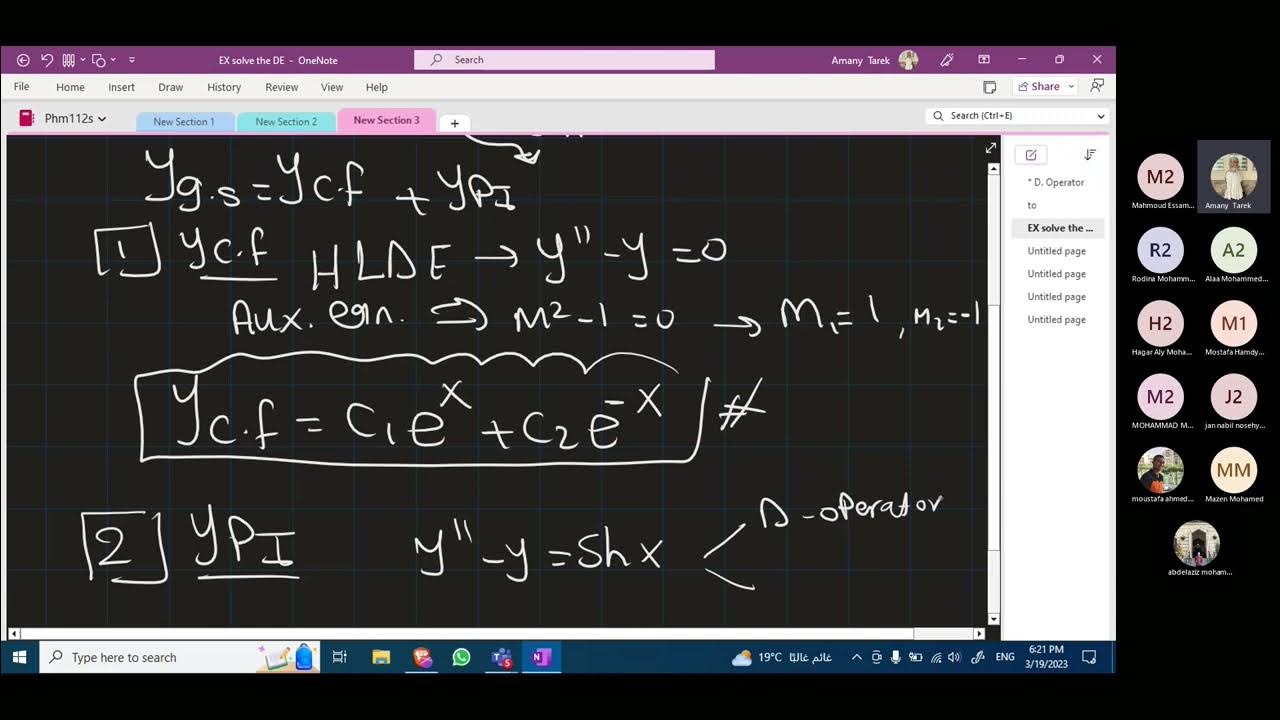 EX solve the DE - OneNote
Search
Amany Tarek
File Home Insert Draw History Review View Help
Share
Phm112s
New Section 1
New Section 2
New Section 3
+
Search (Ctrl+E)
yg.s = yc.f + yPI
1 yc.f HLDE → y" - y = 0
Aux. eqn. ⇒ m² - 1 = 0 → m₁ = 1 , m₂ = -1
yc.f = c₁eˣ + c₂e⁻ˣ #
2 yPI y" - y = Shx
D-operator
* D. Operator
to
EX solve the ...
Untitled page
Untitled page
Untitled page
Untitled page
M2
Mahmoud Essam...
Amany Tarek
R2
Rodina Mohamm...
A2
Alaa Mohammed...
H2
Hagar Aly Moha...
M1
Mostafa Hamdy...
M2
MOHAMMAD M...
J2
jan nabil nosehy...
moustafa ahmed...
MM
Mazen Mohamed
abdelaziz moham...
Type here to search
19°C غائم غالبًا
ENG
6:21 PM
3/19/2023